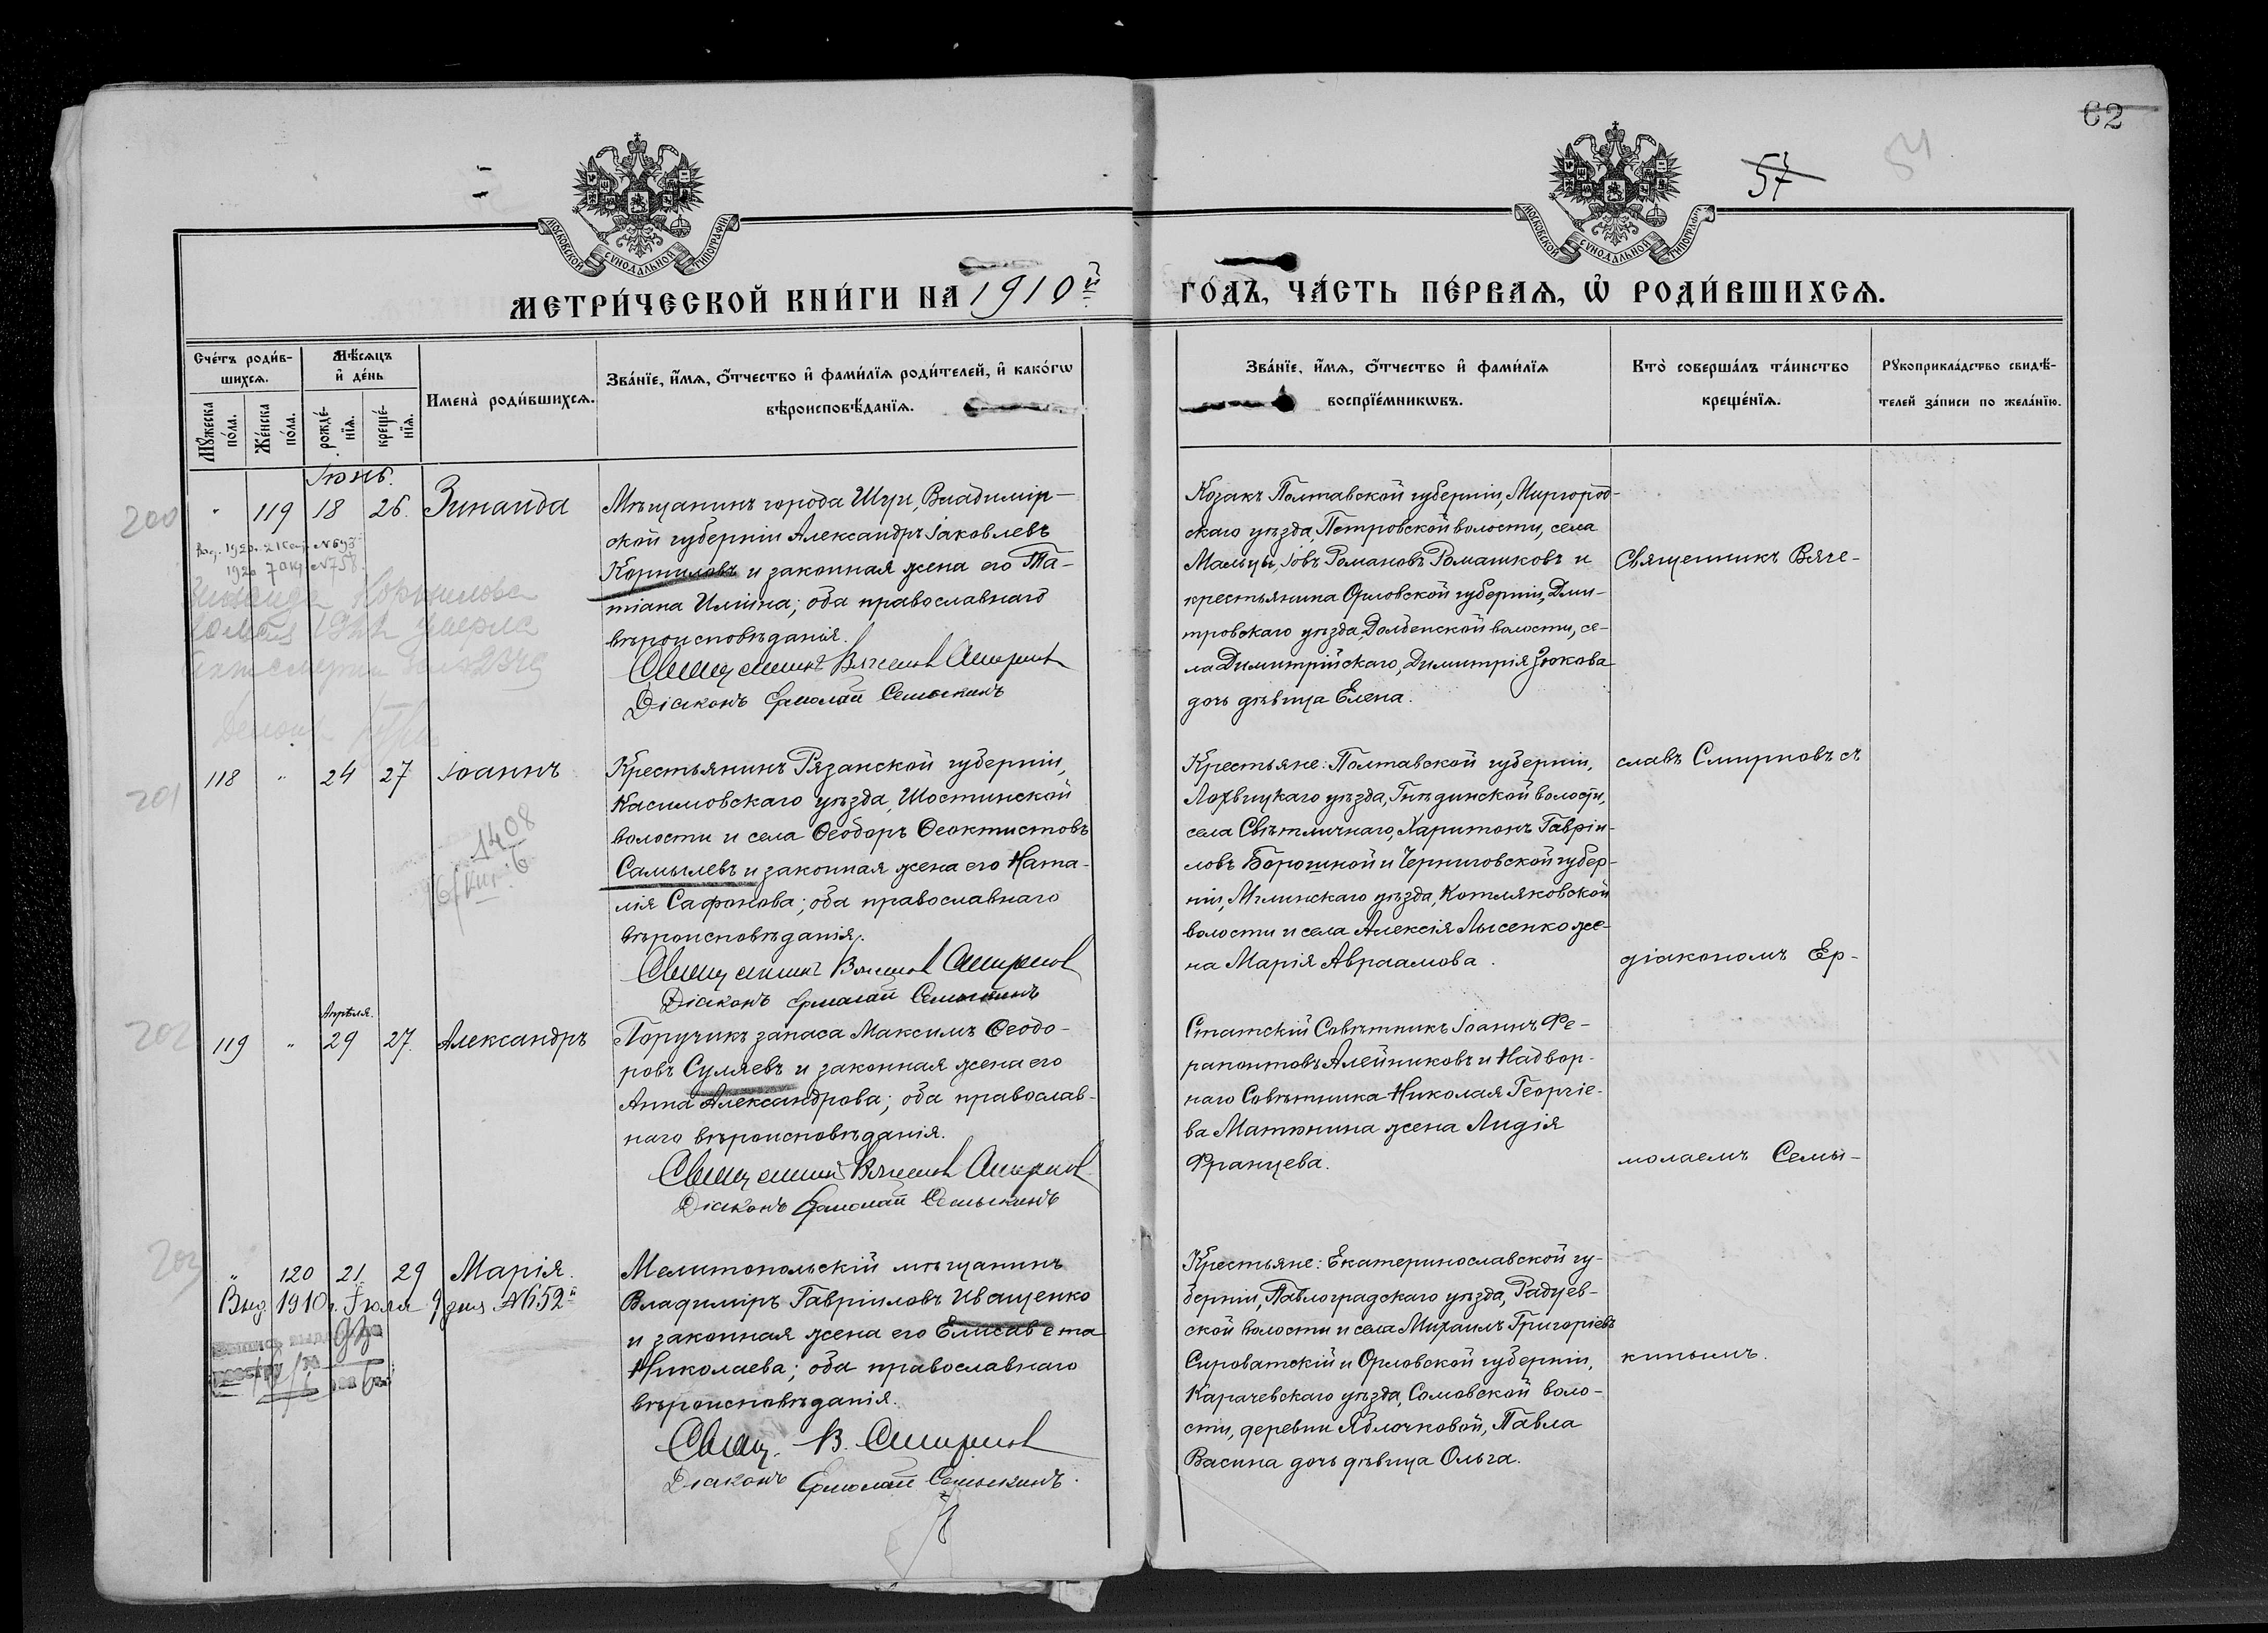 62
57
54
МОСКОВСКОЙ СѴНОДАЛЬНОЙ ТИПОГРАФІИ
МОСКОВСКОЙ СѴНОДАЛЬНОЙ ТИПОГРАФІИ
МЕТРИ́ЧЕСКОЙ КНИ́ГИ НА 1910й
ГО́ДЪ, ЧА́СТЬ ПЕ́РВАѦ, Ѽ РОДИ́ВШИХСѦ.
Сче́тъ роди́в-
шихсѧ.
Мꙋ́жеска по́ла.
Же́нска по́ла.
Мѣ́сѧцъ
и҆ де́нь
рожде́-
нїѧ.
креще́-
нїѧ.
Имена̀ роди́вшихсѧ.
Зва́нїе, и҆́мѧ, ѻ҆́тчество и҆ фами́лїѧ роди́телей, и҆ како́гѡ
вѣроисповѣ́данїѧ.
Зва́нїе, и҆́мѧ, ѻ҆́тчество и҆ фами́лїѧ
воспрїе́мникѡвъ.
Кто̀ соверша́лъ та́инство
креще́нїѧ.
Рꙋкоприкла́дство свидѣ́-
телей за́писи по жела́нїю.
Іюнь.
200 " 119 18 26. Зинаида
Мѣщанинъ города Шуи, Владимір-
ской губерніи Александръ Іаковлевъ
Корниловъ и законная жена его Та-
тіана Иліина; оба православнаго
вѣроисповѣданія.
Священникъ Вячеслав Смирнов
Діаконъ Ермолай Семыкинъ
Козакъ Полтавской губерніи, Миргород-
скаго уѣзда, Петровской волости, села
Мальцы, Іовъ Романовъ Ромашковъ и
крестьянина Орловской губерніи, Дми-
тровскаго уѣзда, Долбенской волости, се-
ла Димитрійскаго, Димитрія Зюкова
дочь дѣвица Елена.
Священникъ Вяче-
201 118 " 24 27 Іоаннъ
1408
Крестьянинъ Рязанской губерніи,
Касимовскаго уѣзда, Шостинской
волости и села Ѳеодоръ Ѳеоктистовъ
Самылевъ и законная жена его Ната-
лія Сафонова; оба православнаго
вѣроисповѣданія.
Священникъ Вячеслав Смирнов
Діаконъ Ермолай Семыкинъ
Крестьяне: Полтавской губерніи,
Лохвицкаго уѣзда, Гнѣдинской волости,
села Свѣтличнаго, Харитонъ Гавріи-
ловъ Борошной и Черниговской губер-
ніи, Мглинскаго уѣзда, Котляковской
волости и села Алексія Лысенко же-
на Марія Авраамова.
славъ Смирновъ съ
діакономъ Ер-
Апрѣля.
202 119 " 29 27. Александръ
Поручикъ запаса Максимъ Ѳеодо-
ровъ Суляевъ и законная жена его
Анна Александрова; оба православ-
наго вѣроисповѣданія.
Священникъ Вячеслав Смирнов
Діаконъ Ермолай Семыкинъ
Статскій Совѣтникъ Іоаннъ Фе-
рапонтовъ Алейниковъ и Надвор-
наго Совѣтника Николая Георгіе-
ва Матюнина жена Лидія
Францева.
молаемъ Семы-
203 " 120 21. 29 Марія.
Выд. 1910 г. Іюля 9 дня №652й
Мелитопольскій мѣщанинъ
Владиміръ Гавріиловъ Иващенко
и законная жена его Елисавета
Николаева; оба православнаго
вѣроисповѣданія.
Свящ. В. Смирнов
Діаконъ Ермолай Семыкинъ.
Крестьяне: Екатеринославской гу-
берніи, Павлоградскаго уѣзда, Радуев-
ской волости и села Михаилъ Григоріевъ
Сироватскій и Орловской губерніи,
Карачевскаго уѣзда, Сомовской воло-
сти, деревни Яблочковой, Павла
Васина дочь дѣвица Ольга.
кинымъ.